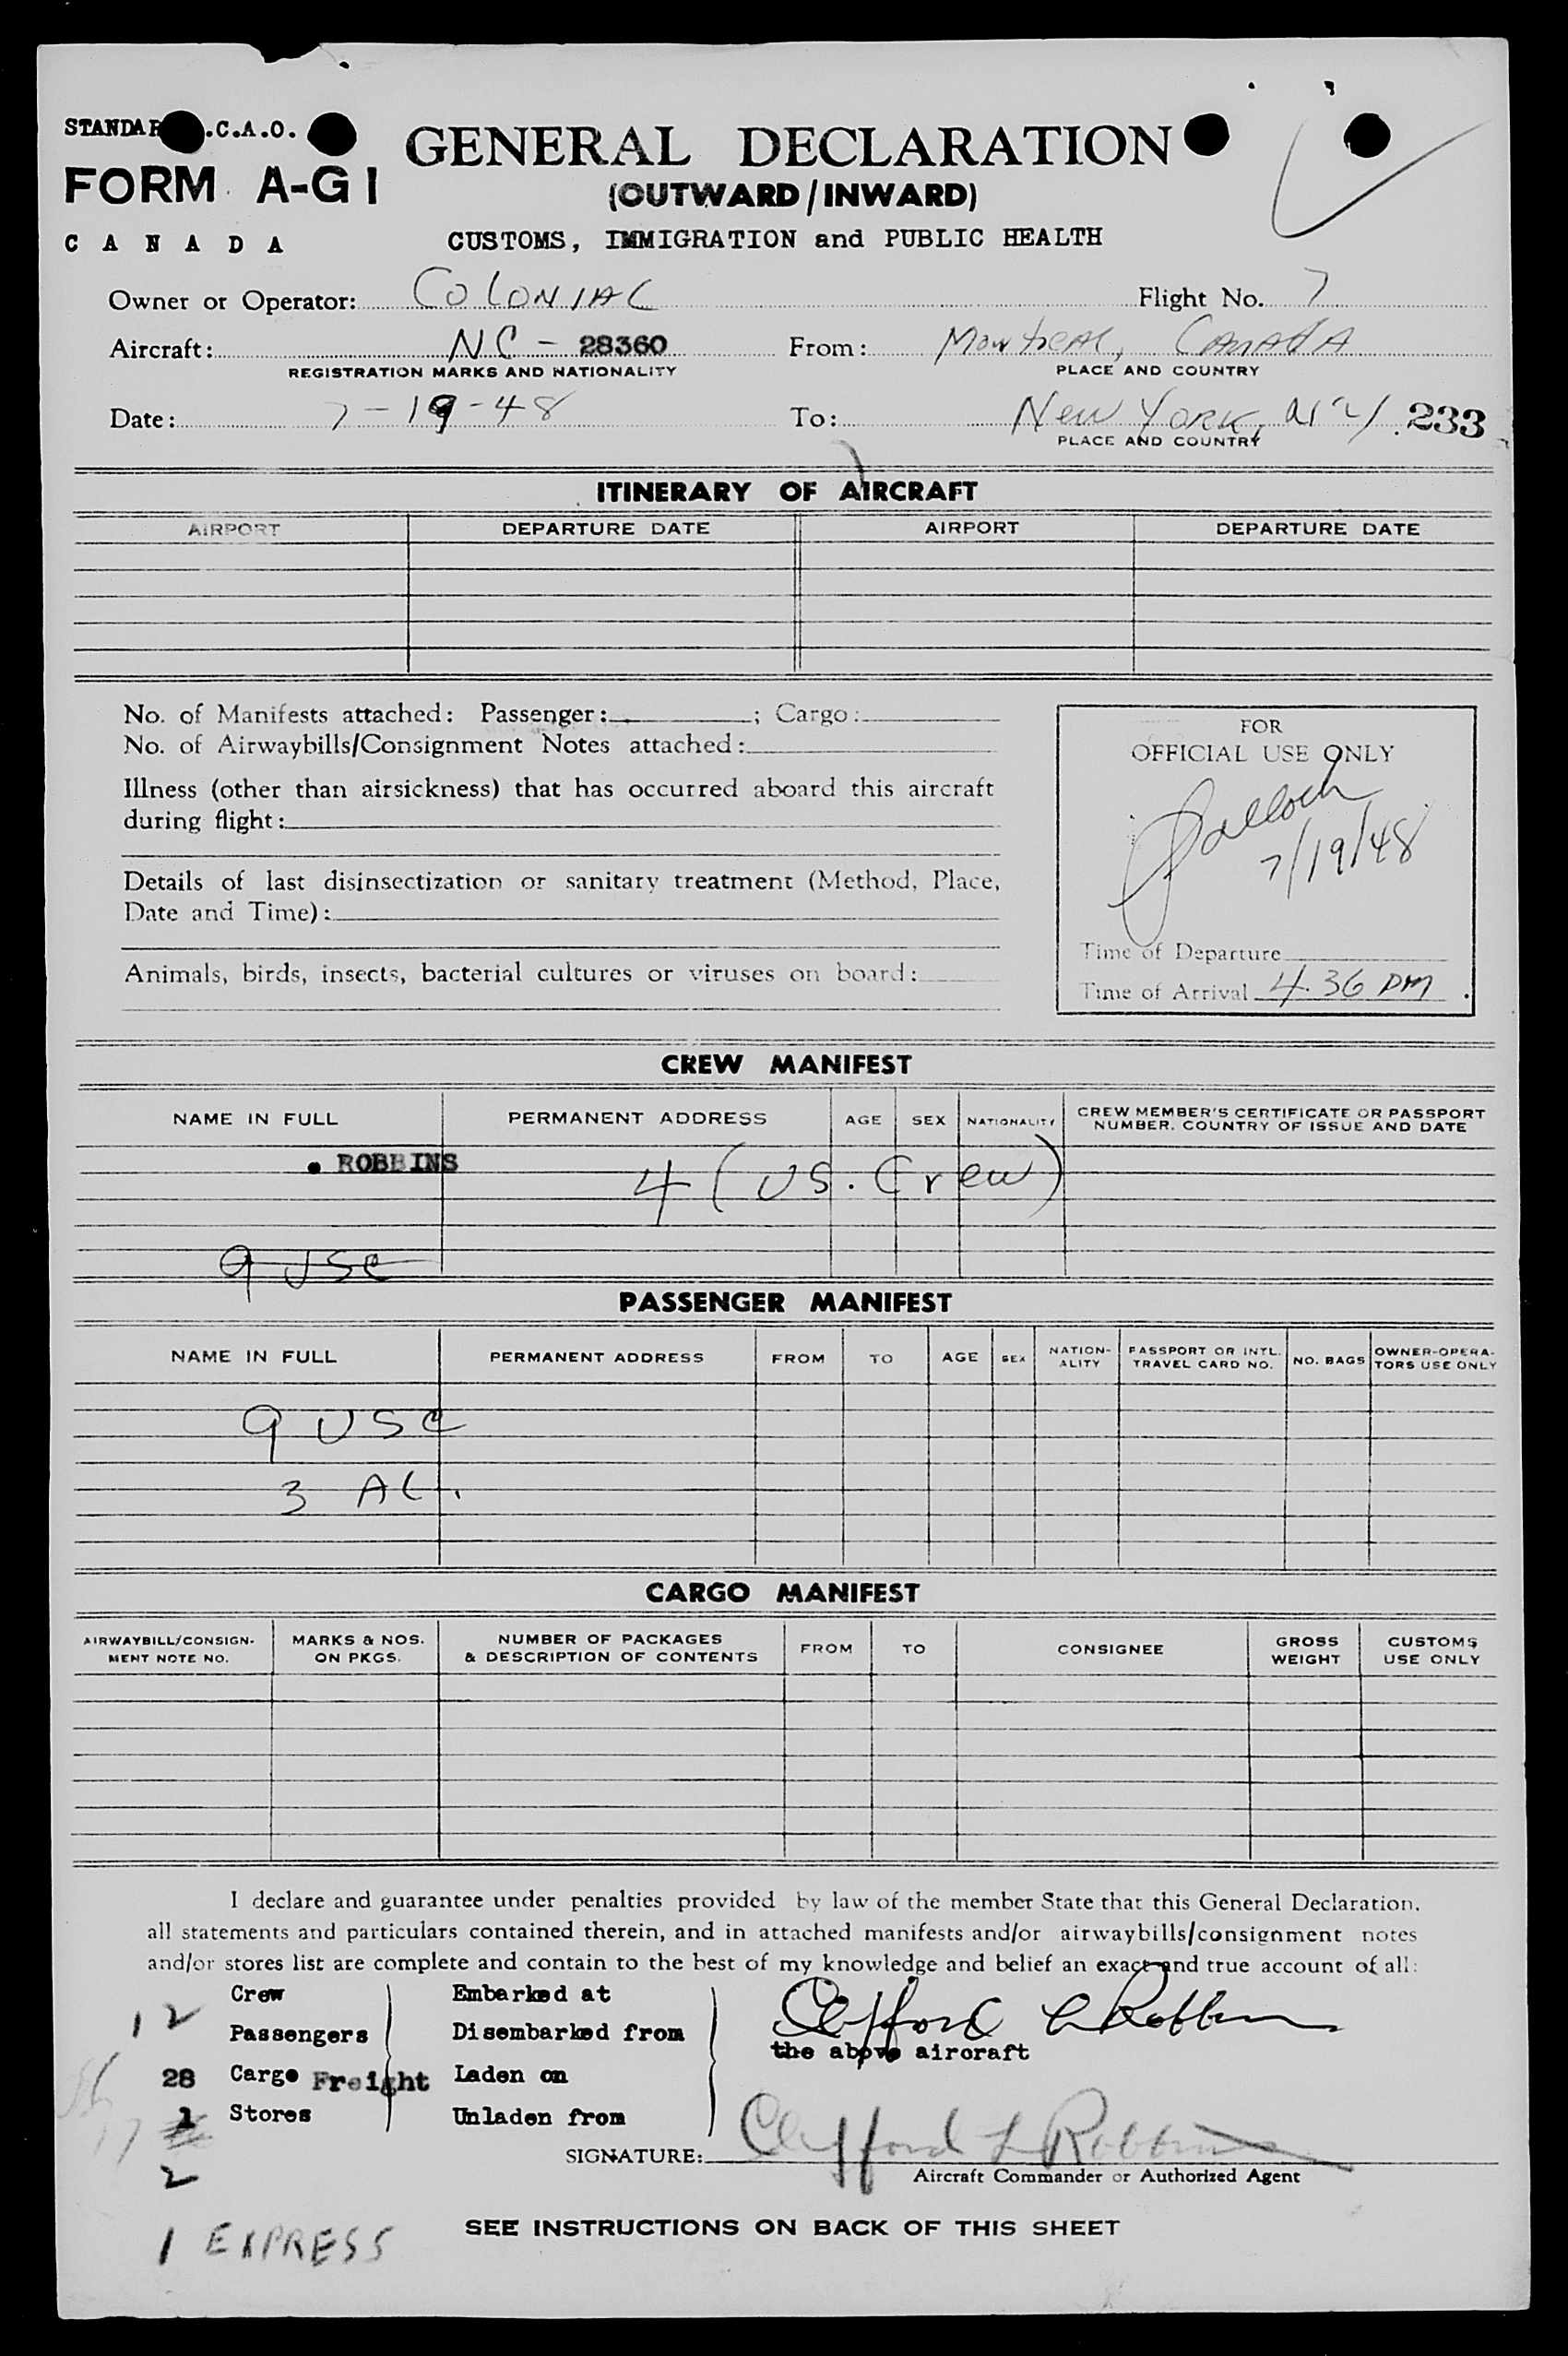 STANDAR .C.A.O.
FORM A-G1
CANADA
GENERAL DECLARATION
(OUTWARD/INWARD)
CUSTOMS, IMMIGRATION and PUBLIC HEALTH
Owner or Operator: COLONIAL Flight No. 7
Aircraft: NC - 28360 From: Montreal, CANADA
REGISTRATION MARKS AND NATIONALITY PLACE AND COUNTRY
Date: 7-19-48 To: New YORK, NY 233
PLACE AND COUNTRY
ITINERARY OF AIRCRAFT
AIRPORT DEPARTURE DATE AIRPORT DEPARTURE DATE
No. of Manifests attached: Passenger: ; Cargo:
No. of Airwaybills/Consignment Notes attached:
Illness (other than airsickness) that has occurred aboard this aircraft
during flight:
Details of last disinsectization or sanitary treatment (Method, Place,
Date and Time):
Animals, birds, insects, bacterial cultures or viruses on board:
FOR
OFFICIAL USE ONLY
7/19/48
Time of Departure
Time of Arrival 4.36 PM
CREW MANIFEST
NAME IN FULL PERMANENT ADDRESS AGE SEX NATIONALITY CREW MEMBER'S CERTIFICATE OR PASSPORT
NUMBER, COUNTRY OF ISSUE AND DATE
ROBBINS
4 (US. Crew)
9 USC
PASSENGER MANIFEST
NAME IN FULL PERMANENT ADDRESS FROM TO AGE SEX NATION-
ALITY PASSPORT OR INTL.
TRAVEL CARD NO. NO. BAGS OWNER-OPERA-
TORS USE ONLY
9 USC
3 AL.
CARGO MANIFEST
AIRWAYBILL/CONSIGN-
MENT NOTE NO. MARKS & NOS.
ON PKGS. NUMBER OF PACKAGES
& DESCRIPTION OF CONTENTS FROM TO CONSIGNEE GROSS
WEIGHT CUSTOMS
USE ONLY
I declare and guarantee under penalties provided by law of the member State that this General Declaration,
all statements and particulars contained therein, and in attached manifests and/or airwaybills/consignment notes
and/or stores list are complete and contain to the best of my knowledge and belief an exact and true account of all:
Crew Embarked at
12 Passengers Disembarked from Clifford L Robbins
the above aircraft
28 Cargo Freight Laden on
1 Stores Unladen from
SIGNATURE: Clifford L Robbins
Aircraft Commander or Authorized Agent
2
1 EXPRESS
SEE INSTRUCTIONS ON BACK OF THIS SHEET